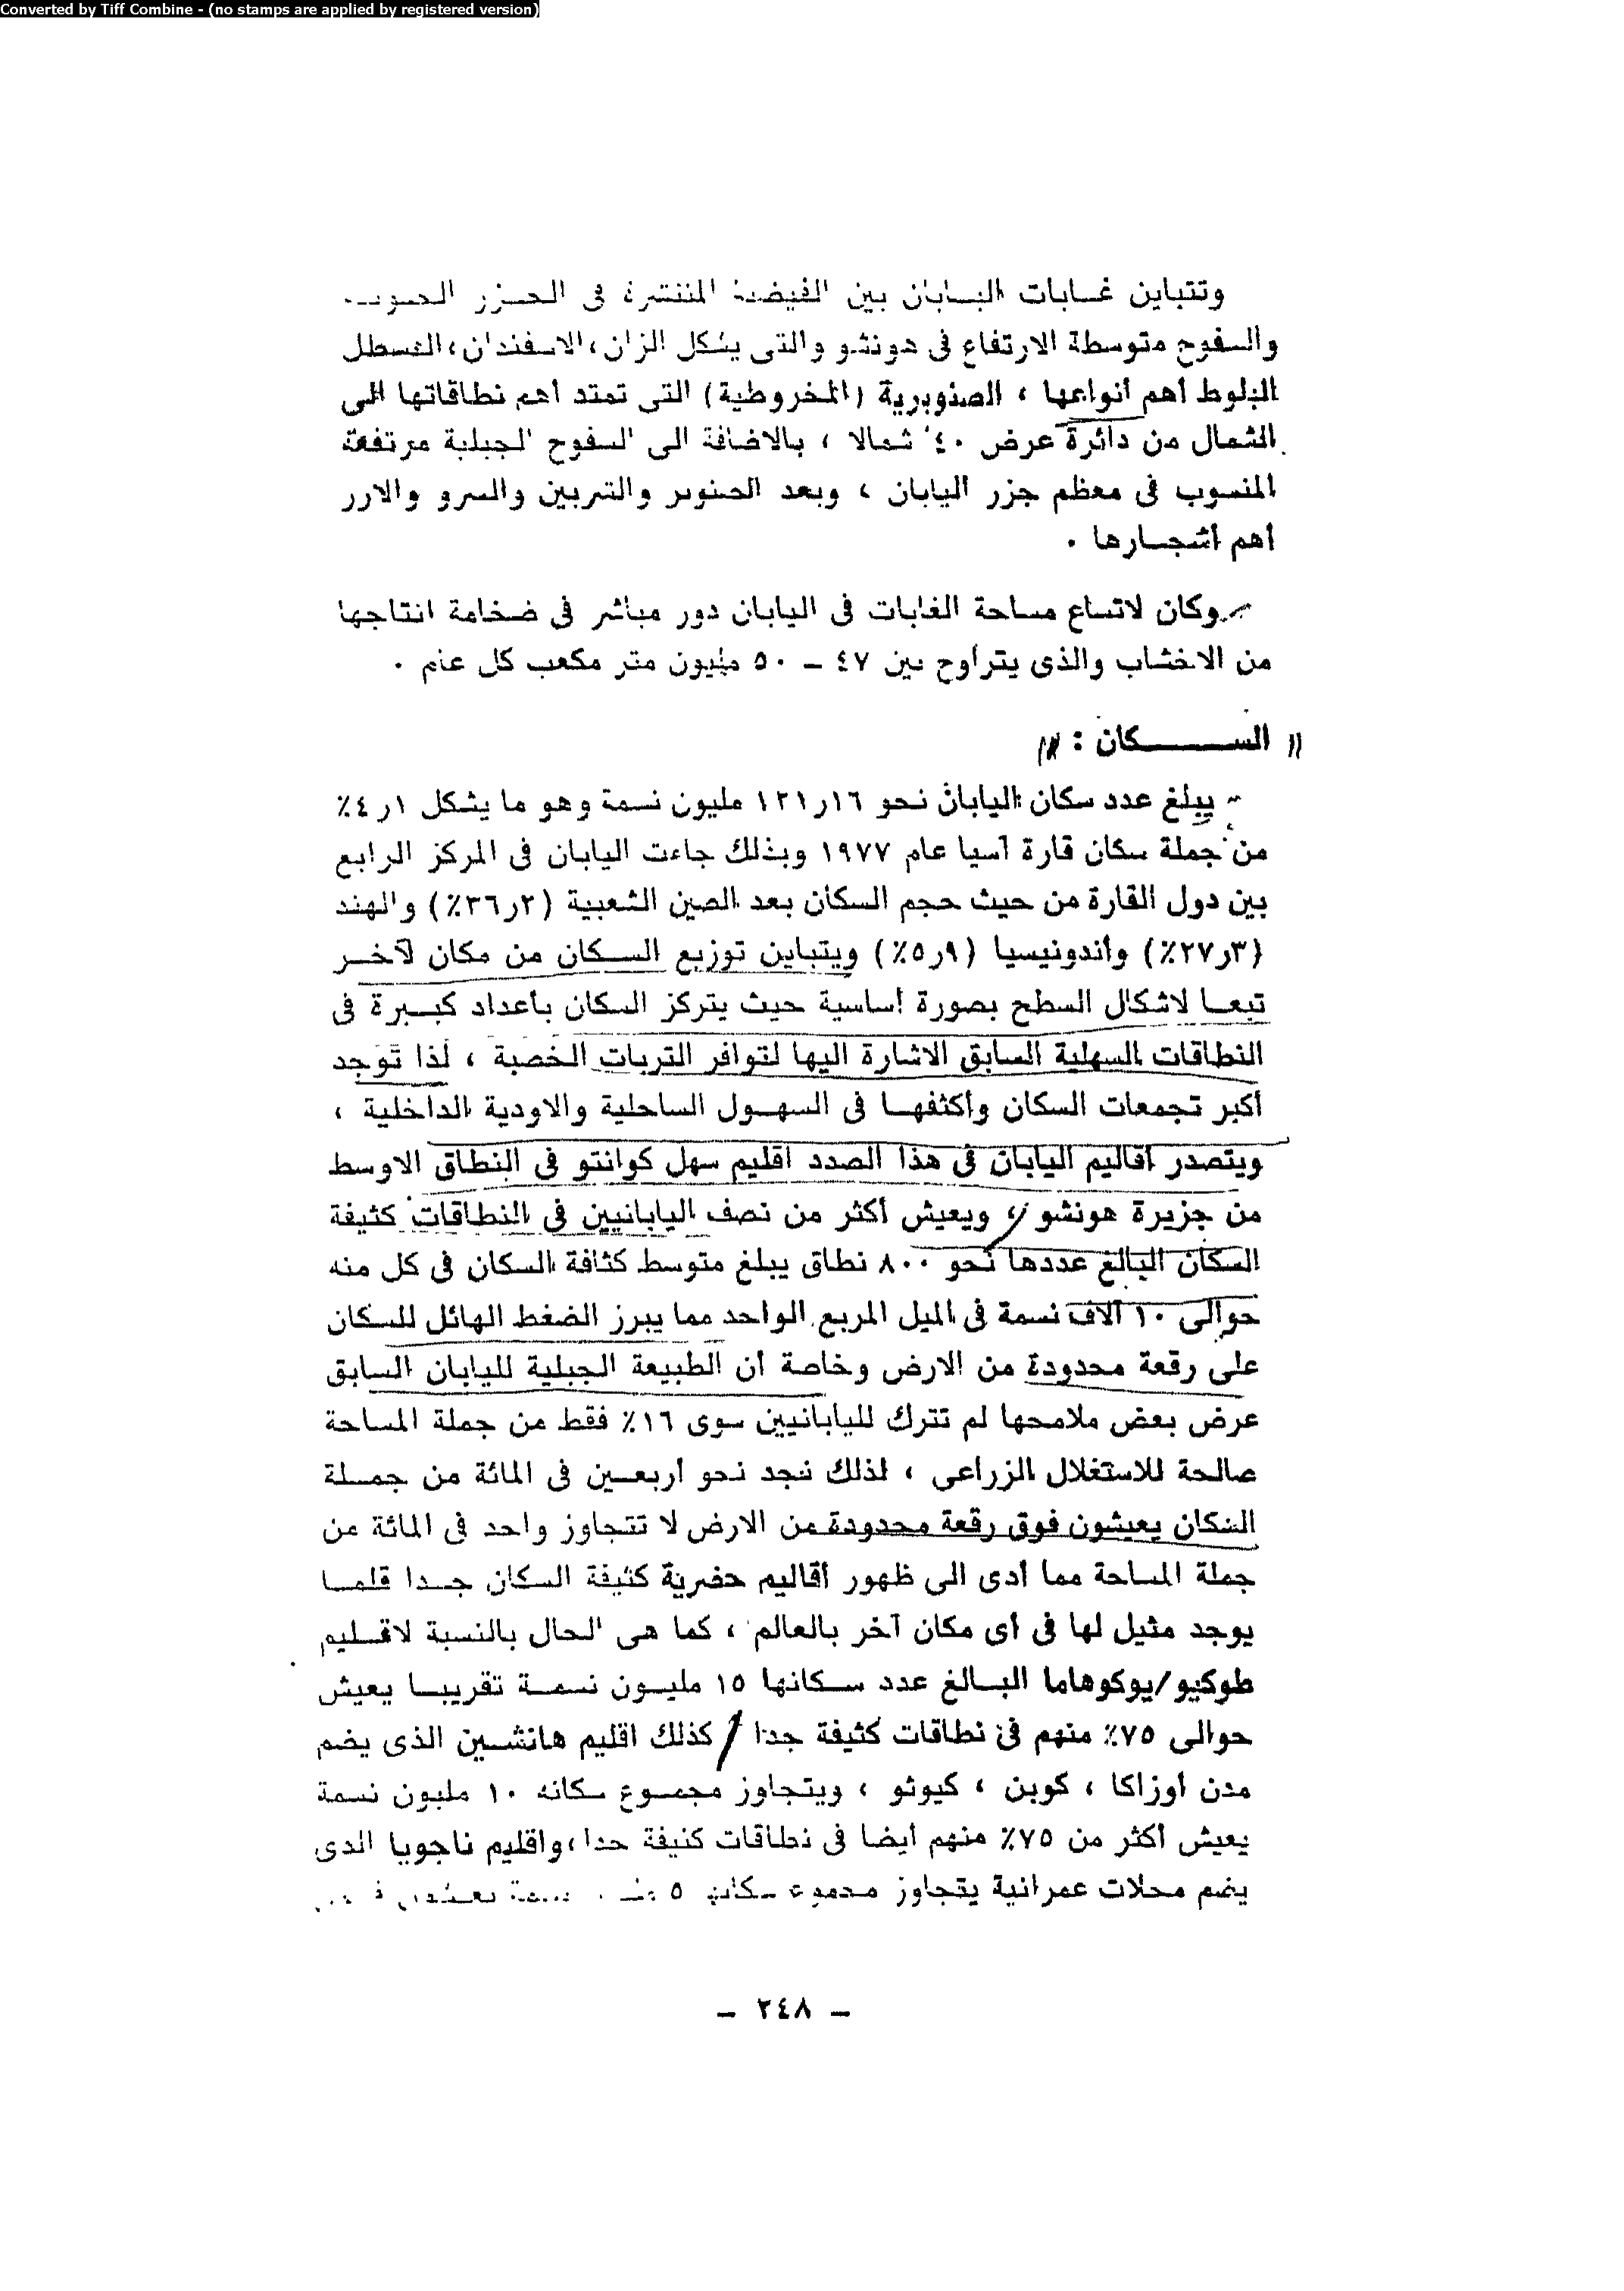 Converted by Tiff Combine - (no stamps are applied by registered version)
وتتباين غـابات اليـابان بين الفيضية المنتشرة فى الجـزر
والسفوح متوسطة الارتفاع فى هونشو والتى يشكل الزان ، الاسفندان ، القسطل
البلوط أهم أنواعها ، الصنوبرية (المخروطية) التى تمتد أهم نطاقاتها الى
الشمال من دائرة عرض ٤٠° شمالا ، بالاضافة الى السفوح الجبلية مرتفعة
المنسوب فى معظم جزر اليابان ، ويعد الصنوبر والشربين والسرو والارر
أهم أشجـارها .
وكان لاتساع مساحة الغابات فى اليابان دور مباشر فى ضخامة انتاجها
من الاخشاب والذى يتراوح بين ٤٧ – ٥٠ مليون متر مكعب كل عام .
السـكان :
يبلغ عدد سكان اليابان نحو ١٦ر١٢١ مليون نسمة وهو ما يشكل ١ر٤٪
من جملة سكان قارة آسيا عام ١٩٧٧ وبذلك جاءت اليابان فى المركز الرابع
بين دول القارة من حيث حجم السكان بعد الصين الشعبية (٢ر٣٦٪) والهند
(٣ر٢٧٪) وأندونيسيا (٩ر٥٪) ويتباين توزيع السـكان من مكان لآخـر
تبعـا لاشكال السطح بصورة أساسية حيث يتركز السكان بأعداد كبـيرة فى
النطاقات السهلية السابق الاشارة اليها لتوافر التربات الخصبة ، لذا توجد
أكبر تجمعات السكان وأكثفهـا فى السهـول الساحلية والاودية الداخلية ،
ويتصدر أقاليم اليابان فى هذا الصدد اقليم سهل كوانتو فى النطاق الاوسط
من جزيرة هونشو ، ويعيش أكثر من نصف اليابانيين فى النطاقات كثيفة
السكان البالغ عددها نحو ٨٠٠ نطاق يبلغ متوسط كثافة السكان فى كل منه
حوالى ١٠ آلاف نسمة فى الميل المربع الواحد مما يبرز الضغط الهائل للسكان
على رقعة محدودة من الارض وخاصة أن الطبيعة الجبلية لليابان السابق
عرض بعض ملامحها لم تترك لليابانيين سوى ١٦٪ فقط من جملة المساحة
صالحة للاستغلال الزراعى ، لذلك نجد نحو أربعـين فى المائة من جمـلة
السكان يعيشون فوق رقعة محدودة من الارض لا تتجاوز واحد فى المائة من
جملة المساحة مما أدى الى ظهور أقاليم حضرية كثيفة السكان جـدا قلمـا
يوجد مثيل لها فى أى مكان آخر بالعالم ، كما هى الحال بالنسبة لاقـليم
طوكيو/يوكوهاما البـالغ عدد سـكانها ١٥ مليـون نسمـة تقريبـا يعيش
حوالى ٧٥٪ منهم فى نطاقات كثيفة جدا / كذلك اقليم هانشـين الذى يضم
مدن أوزاكا ، كوبن ، كيوثو ، ويتجاوز مجمـوع سكانه ١٠ مليون نسمة
يعيش أكثر من ٧٥٪ منهم أيضا فى نطاقات كثيفة جدا ، واقليم ناجويا الذى
يضم محلات عمرانية يتجاوز مجموع سكانها ٥
– ٢٤٨ –